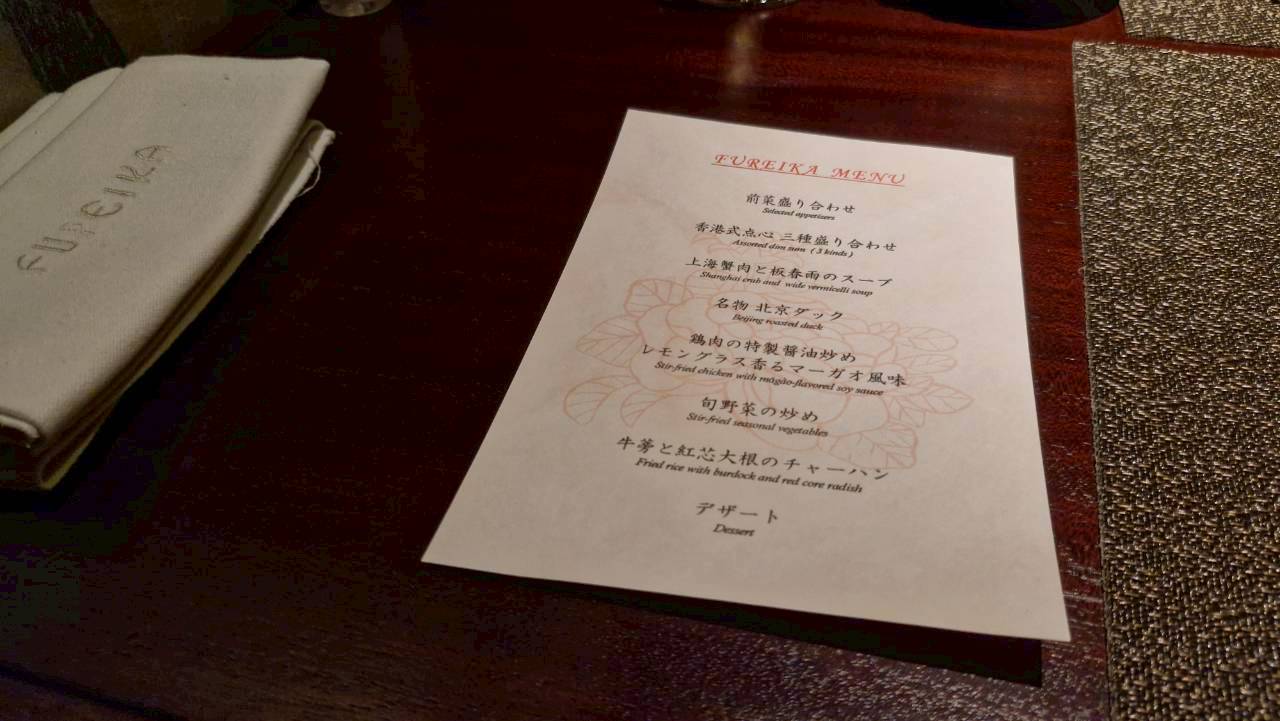 FUREIKA
FUREIKA MENU
前菜盛り合わせ
Selected appetizers
香港式点心 三種盛り合わせ
Assorted dim sum ( 3 kinds )
上海蟹肉と板春雨のスープ
Shanghai crab and wide vermicelli soup
名物 北京ダック
Beijing roasted duck
鶏肉の特製醤油炒め
レモングラス香るマーガオ風味
Stir-fried chicken with māgào-flavored soy sauce
旬野菜の炒め
Stir-fried seasonal vegetables
牛蒡と紅芯大根のチャーハン
Fried rice with burdock and red core radish
デザート
Dessert